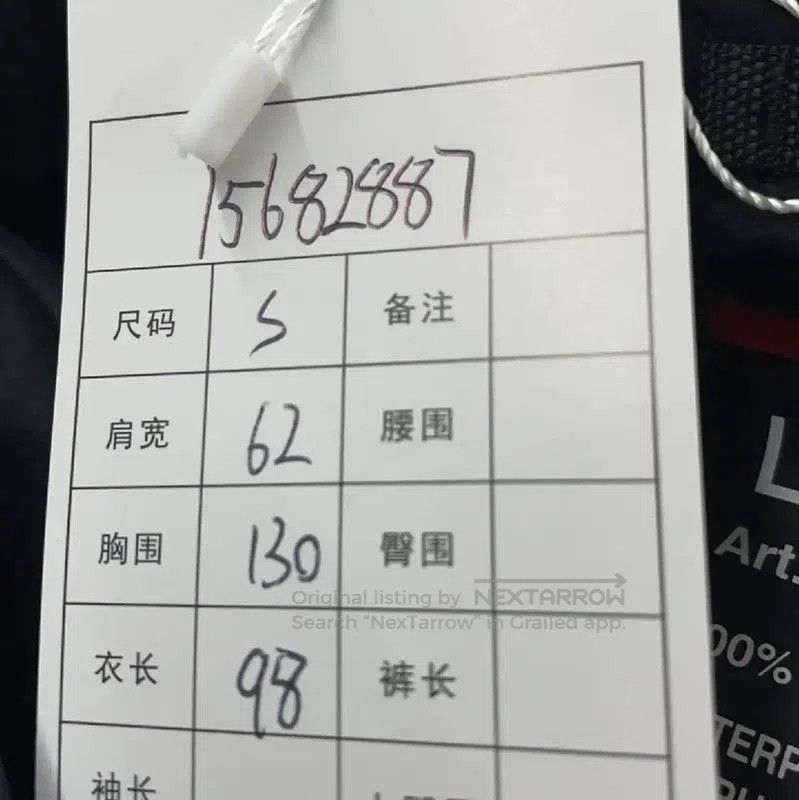 15682887
尺码 S 备注
肩宽 62 腰围
胸围 130 臀围
Original listing by NEXTARROW
Search "NexTarrow" in Grailed app.
衣长 98 裤长
袖长
L
Art.
00%
TERP